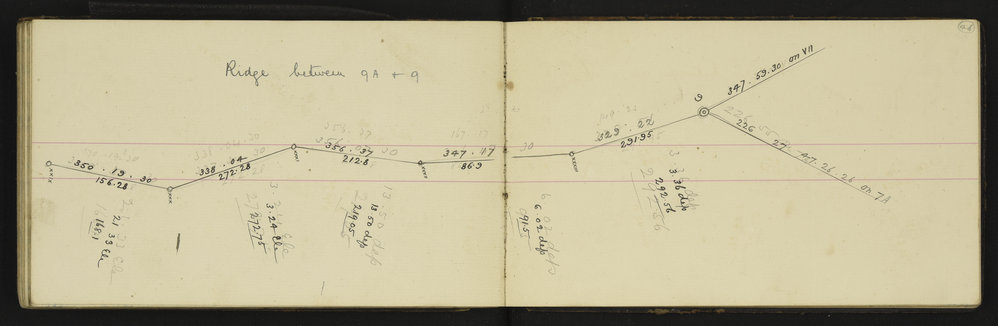 Ridge between 9A + 9
XXIX
350 . 19 . 30
156.28
21 33 Ele
168.1
XXX
338 . 04
272.28
3.24 Ele
272.75
XXXI
356 . 37
212.8
13 50 dep
219.05
XXXII
347 . 17
86.9
6 02 dep
91.5
XXXIII
329 . 22
291.95
3 36 dep
292.56
9
347 . 59.30 on VII
226
27 . 47.26 . 26 on 7A